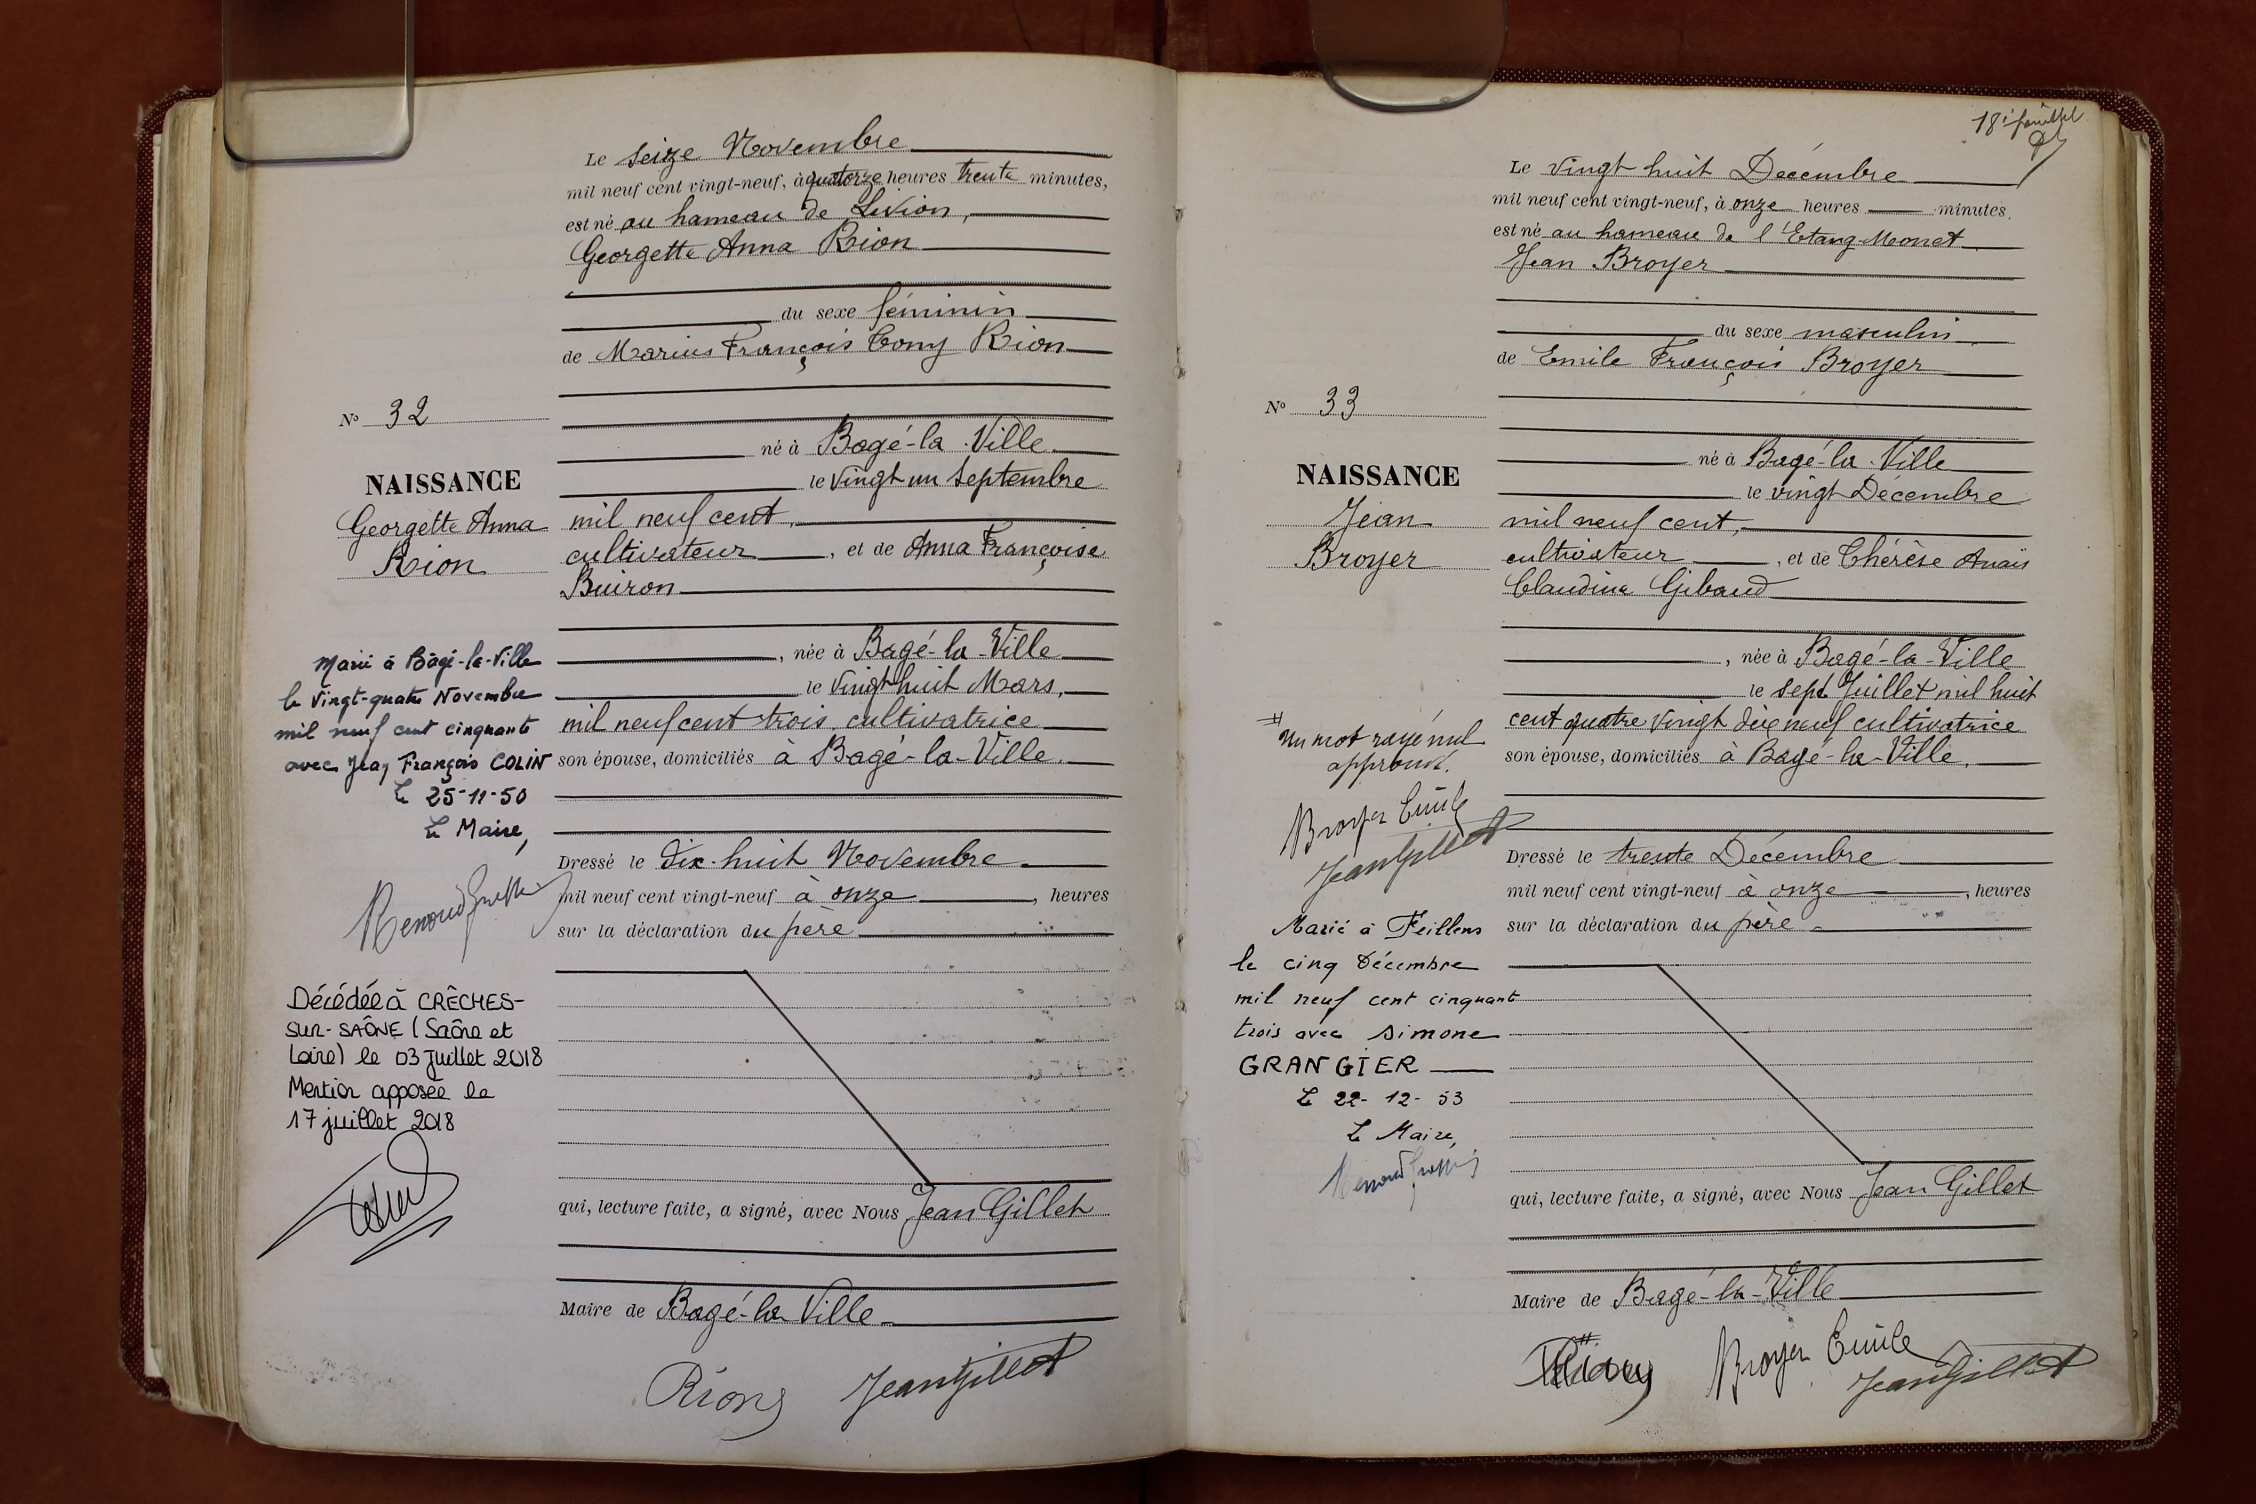 Le seize Novembre
mil neuf cent vingt-neuf, à quatorze heures trente minutes,
est né au hameau de Livion,
Georgette Anna Rion
du sexe féminin
de Marius François Tony Rion
N° 32
né à Bagé-la-Ville
le vingt un Septembre
NAISSANCE
Georgette Anna
Rion
mil neuf cent,
cultivateur, et de Anna Françoise
Buiron
, née à Bagé-la-Ville
le vingt huit Mars,
mil neuf cent trois cultivatrice
son épouse, domiciliés à Bagé-la-Ville.
Marié à Bâgé-la-Ville
le vingt-quatre Novembre
mil neuf cent cinquante
avec Jean François COLIN
Le 25-11-50
Le Maire,
Dressé le dix-huit Novembre
mil neuf cent vingt-neuf à onze, heures
sur la déclaration du père
Décédée à CRÊCHES-
SUR-SAÔNE (Saône et
Loire) le 03 juillet 2018
Mention apposée le
17 juillet 2018
qui, lecture faite, a signé, avec Nous Jean Gillet
Maire de Bagé-la-Ville
Rion Jean Gillet
18e feuillet
Le vingt huit Décembre
mil neuf cent vingt-neuf, à onze heures minutes,
est né au hameau de l'Etang-Monet
Jean Broyer
du sexe masculin
de Emile François Broyer
N° 33
né à Bagé-la-Ville
le vingt Décembre
NAISSANCE
Jean
Broyer
mil neuf cent,
cultivateur, et de Thérèse Anaïs
Claudine Gibaud
, née à Bagé-la-Ville
le sept Juillet mil huit
cent quatre vingt dix neuf cultivatrice
son épouse, domiciliés à Bagé-la-Ville.
Un mot rayé nul
approuvé.
Broyer Emile
Jean Gillet
Dressé le trente Décembre
mil neuf cent vingt-neuf à onze, heures
sur la déclaration du père
Marié à Feillens
le cinq Décembre
mil neuf cent cinquante
trois avec Simone
GRANGIER
Le 22-12-53
Le Maire,
qui, lecture faite, a signé, avec Nous Jean Gillet
Maire de Bagé-la-Ville
Broyer Emile
Jean Gillet